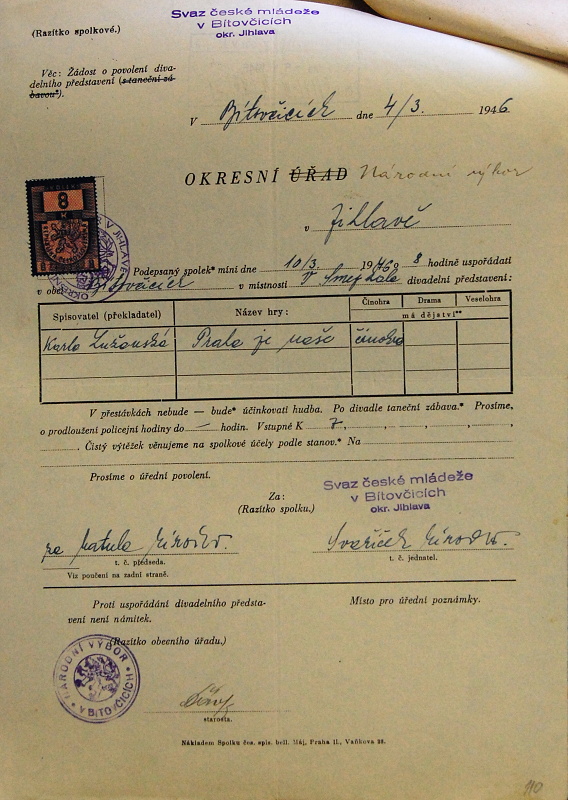 Svaz české mládeže
v Bítovčicích
okr. Jihlava
(Razítko spolkové.)
Věc: Žádost o povolení diva-
delního představení (s taneční zá-
bavou*).
V Bítovčicích dne 4/3. 1946
OKRESNÍ ÚŘAD Národní výbor
v Jihlavě
KOLEK
8
K
Podepsaný spolek* míní dne 10/3. 1946 o 8 hodině uspořádati
v obci Bítovčicích v místnosti divadelní představení:
Spisovatel (překladatel) Název hry: Činohra Drama Veselohra
má dějství**
Karla Lužanská Praha je naše činohra
V přestávkách nebude — bude* účinkovati hudba. Po divadle taneční zábava.* Prosíme,
o prodloužení policejní hodiny do — hodin. Vstupné K 7,
Čistý výtěžek věnujeme na spolkové účely podle stanov.* Na
Prosíme o úřední povolení.
Za:
(Razítko spolku.)
Svaz české mládeže
v Bítovčicích
okr. Jihlava
za Matula
t. č. předseda. t. č. jednatel.
Viz poučení na zadní straně.
Proti uspořádání divadelního předsta-
vení není námitek.
Místo pro úřední poznámky.
(Razítko obecního úřadu.)
NÁRODNÍ VÝBOR V BÍTOVČICÍCH
starosta.
Nákladem Spolku čes. spis. bell. Máj, Praha II., Vaňkova 38.